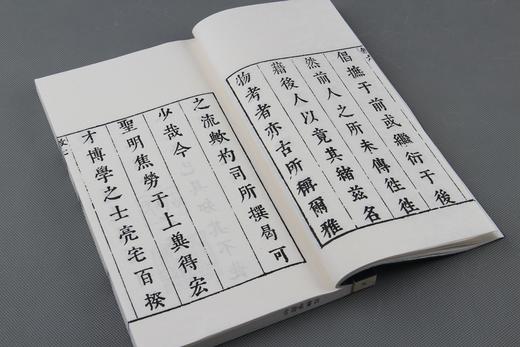 倡摭于前或繼衍于後
然前人之所未傳往往
藉後人以竟其緒茲名
物考者亦古所稱爾雅
之流歟杓司所撰曷可
少哉今
聖明焦勞于上冀得宏
才博學之士亮宅百揆